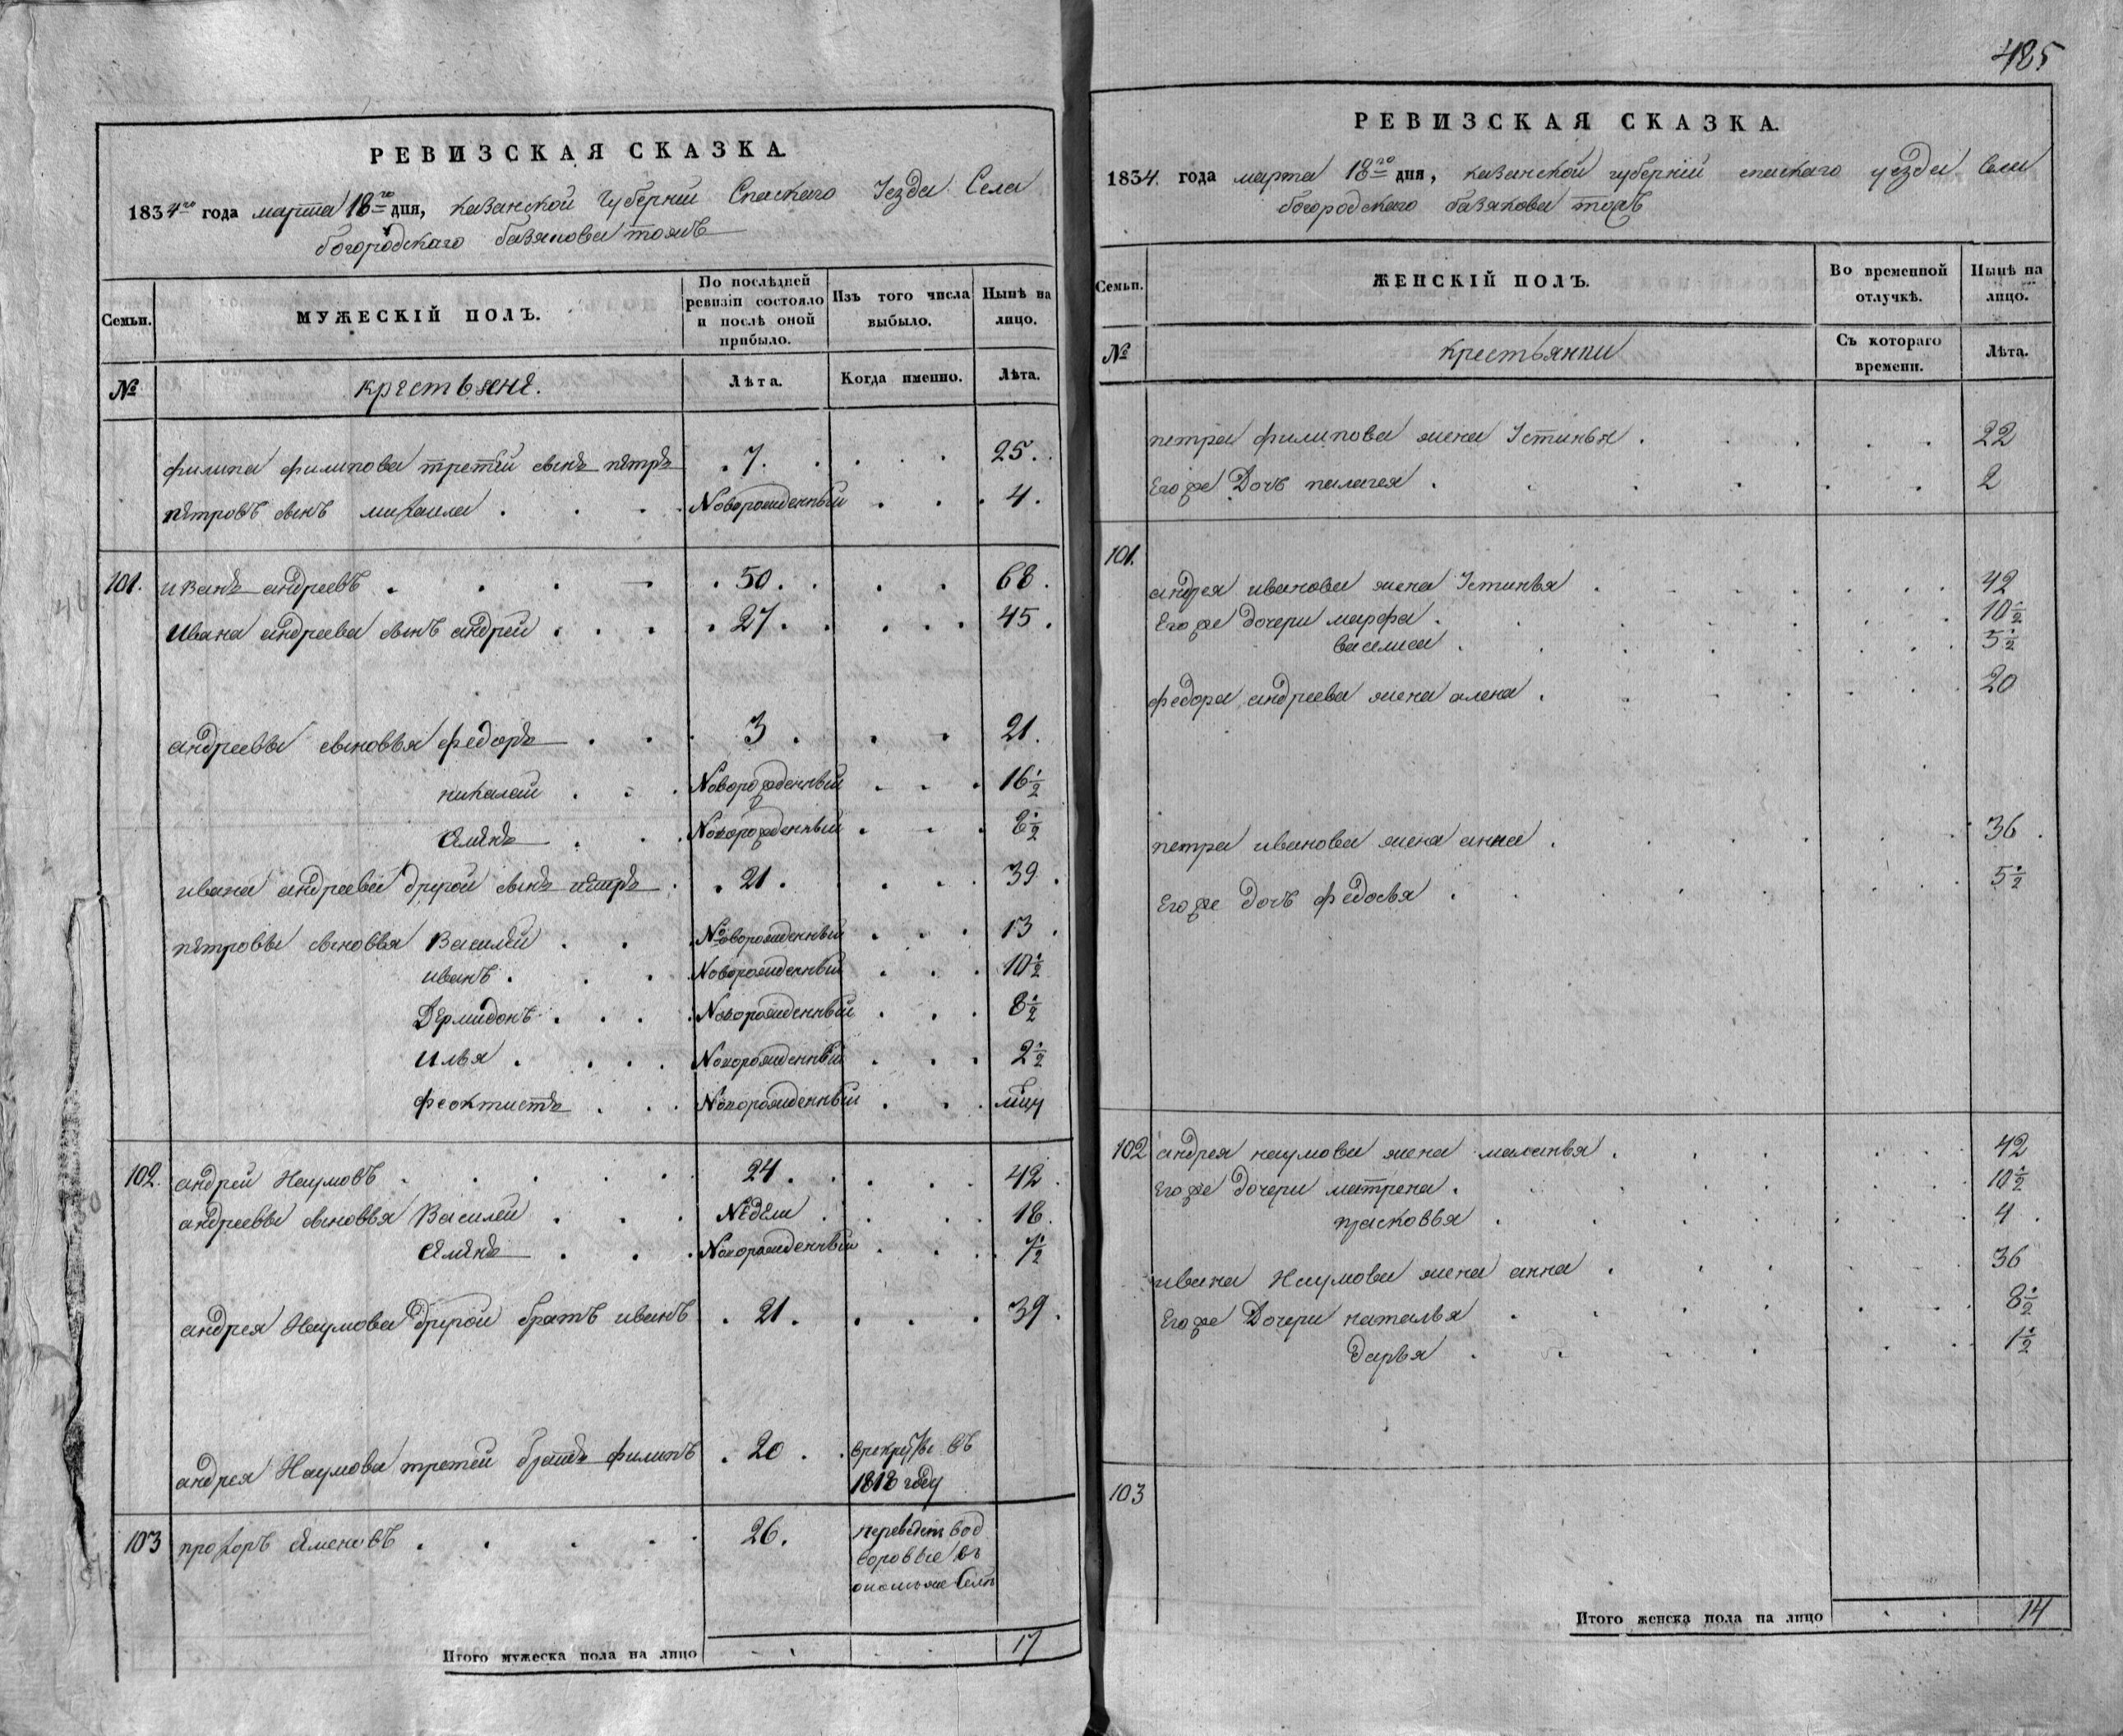 РЕВИЗСКАЯ СКАЗКА.
1834го года марта 18го дня, казанской Губерніи Спаскаго Уезда Села
богородскаго базяковы тожъ
Семьи. МУЖЕСКІЙ ПОЛЪ. По послѣдней ревизіи состояло и послѣ оной прибыло. Изъ того числа выбыло. Нынѣ на лицо.
№ крестьяне. Лѣта. Когда именно. Лѣта.
филипа филипова третий сынъ петръ . 7. 25.
петровъ сынъ михаила . Новорожденный 4.
101. иванъ андреевъ . 50. 68.
ивана андреева сынъ андрей . 27. 45.
андреевы сыновья федоръ . 3. 21.
николай . Новорожденный 16 1/2
Новорожденный 6 1/2
ивана андреева другой сынъ петръ . 21. 39.
петровы сыновья Василей . Новорожденный 13.
иванъ . Новорожденный 10 1/2
Дермидонъ . Новорожденный 8 1/2
илья . Новорожденный 2 1/2
феоктистъ . Новорожденный
102. андрей Наумовъ . 24. 42.
андреевы сыновья Василей . Недели 18.
Новорожденный 7 1/2
андрея Наумова другой братъ иванъ . 21. 39.
андрея Наумова третей братъ филипъ . 20. въ
1818 году
103 прохоръ . 26. переведенъ вод
воровые въ
село
Итого мужеска пола на лицо 17
485
РЕВИЗСКАЯ СКАЗКА.
1834. года марта 18го дня, казанской губерніи спаскаго уезда Села
богородскаго базякова тожъ
Семьи. ЖЕНСКІЙ ПОЛЪ. Во временной отлучкѣ. Нынѣ на лицо.
№ крестьянки Съ котораго времени. Лѣта.
петра филипова жена Устинья . 22
Его же Дочь пилагея . 2
101.
андрея иванова жена Устинья . 42
Его же дочери марфа . 10 1/2
василиса . 5 1/2
федора андреева жена алена . 20
петра иванова жена анна . 36.
Его же дочь федосья . 5 1/2
102 андрея наумова жена маланья . 42
Его же дочери матрена . 10 1/2
прасковья . 4.
ивана Наумова жена анна . 36
Его же Дочери наталья . 8 1/2
дарья . 1 1/2
103
Итого женска пола на лицо 14